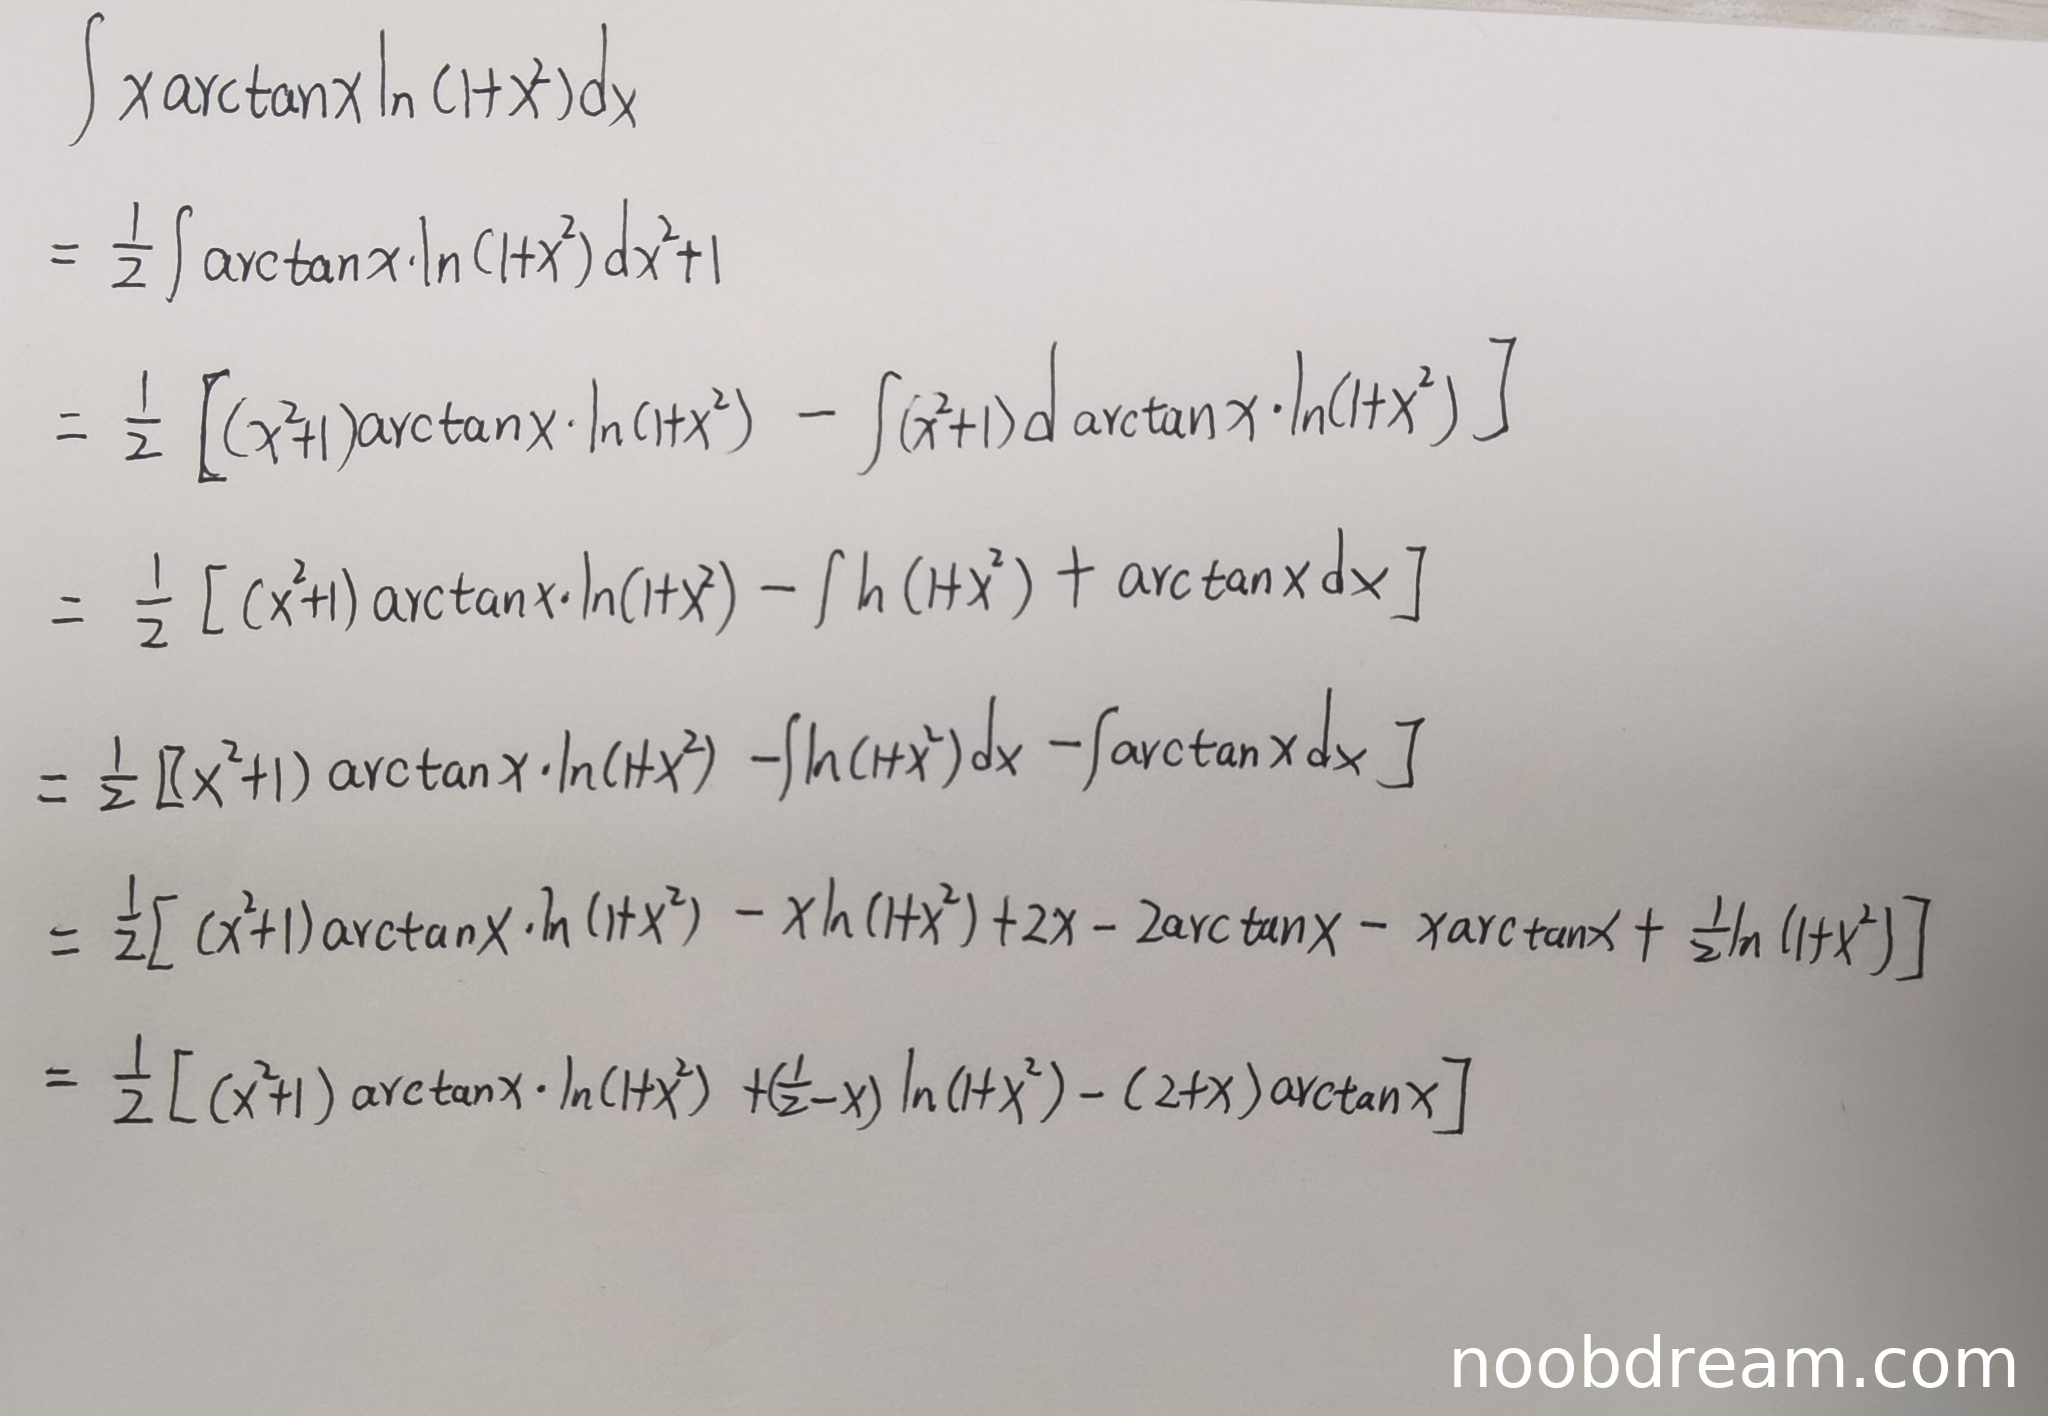 ∫ x arctanx ln (1+x²) dx
= 1/2 ∫ arctanx·ln (1+x²) dx²+1
= 1/2 [(x²+1) arctanx·ln (1+x²) − ∫(x²+1) d arctanx·ln(1+x²)]
= 1/2 [(x²+1) arctanx·ln(1+x²) − ∫ln (1+x²) + arctanx dx]
= 1/2 [(x²+1) arctanx·ln(1+x²) −∫ln (1+x²) dx −∫arctanx dx]
= 1/2 [(x²+1) arctanx·ln (1+x²) − x ln (1+x²) + 2x − 2arctanx − x arctanx + 1/2 ln (1+x²)]
= 1/2 [(x²+1) arctanx·ln(1+x²) + (1/2−x) ln (1+x²) − (2+x) arctanx]
noobdream.com